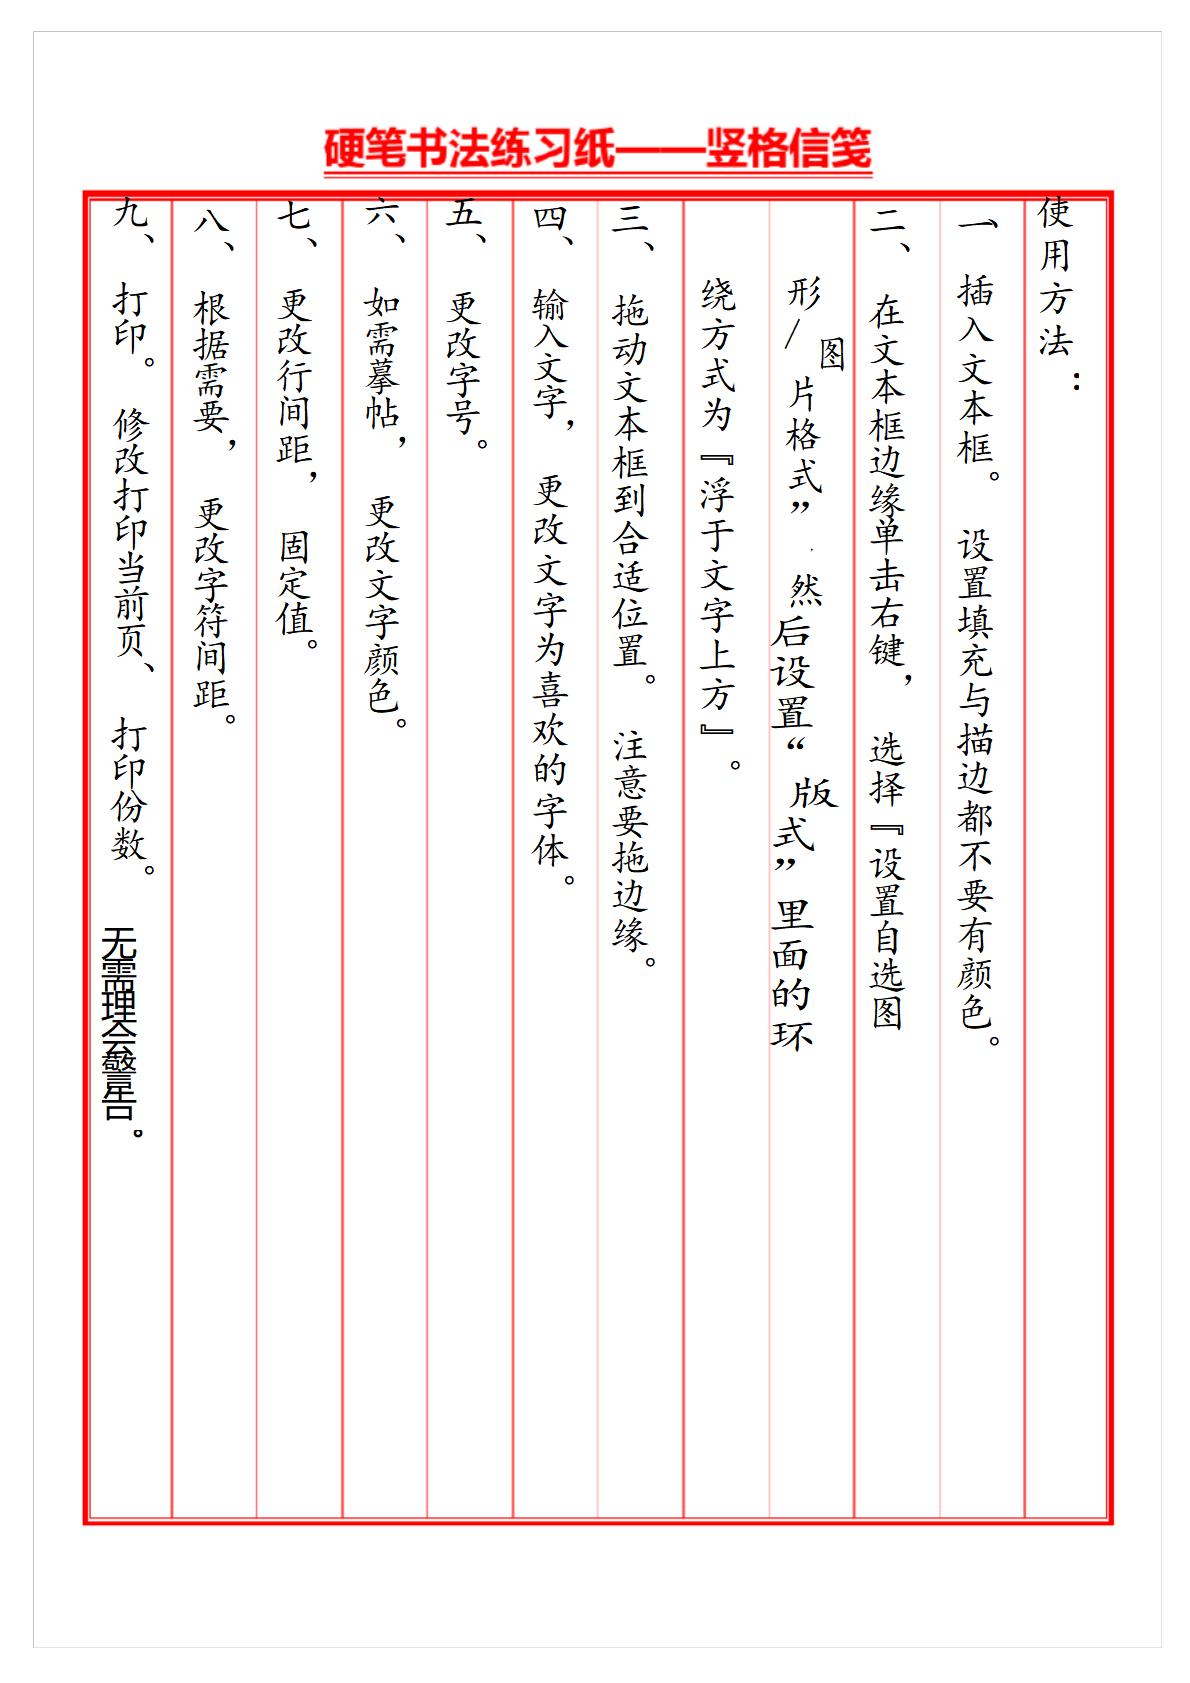 硬笔书法练习纸——竖格信笺
使用方法：
一、插入文本框。设置填充与描边都不要有颜色。
二、在文本框边缘单击右键，选择『设置自选图
形/图片格式”然后设置“版式”里面的环
绕方式为『浮于文字上方』。
三、拖动文本框到合适位置。注意要拖边缘。
四、输入文字，更改文字为喜欢的字体。
五、更改字号。
六、如需摹帖，更改文字颜色。
七、更改行间距，固定值。
八、根据需要，更改字符间距。
九、打印。修改打印当前页、打印份数。无需理会警告。